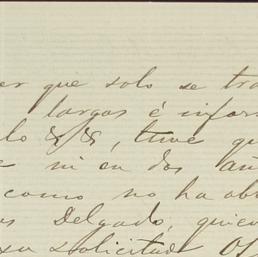 er que solo se tra
largas é infor
lo &/&, tuve qu
ni en dos añ
como no ha ob
os Delgado, quien
su solicitud Of